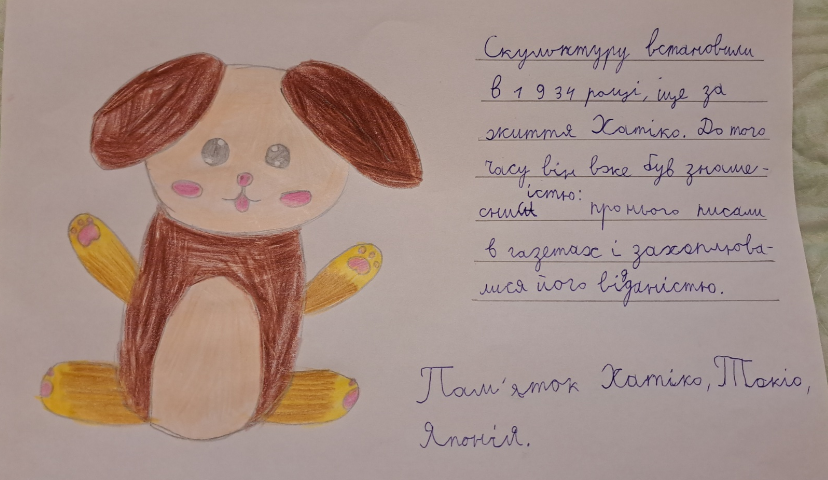 Скульптуру встановили
в 1934 році, ще за
життя Хатіко. До того
часу він вже був знаме-
істю:
сний про нього писали
в газетах і захоплюва-
лися його відданістю.
Пам'яток Хатіко, Токіо,
Японія.